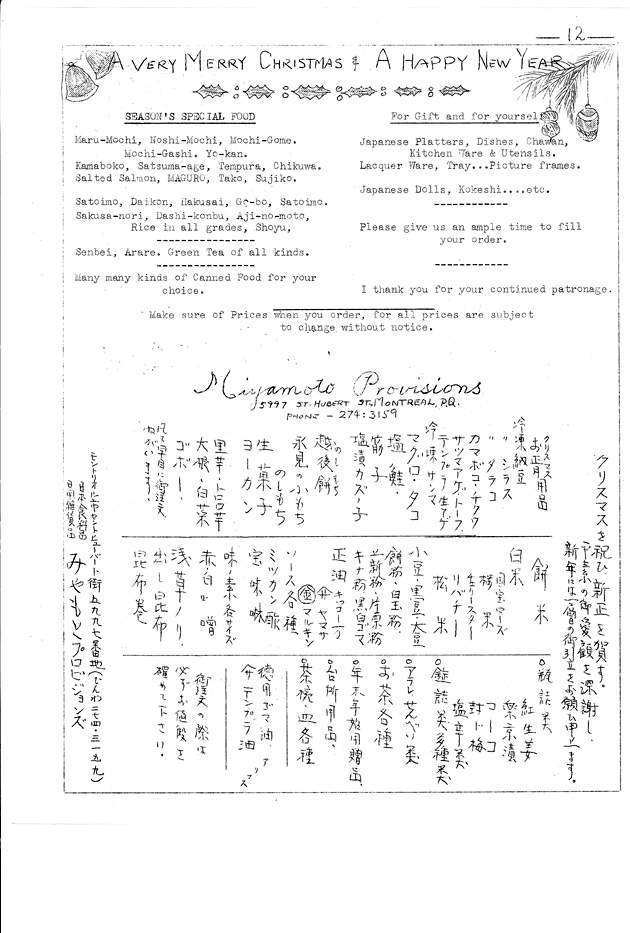 12
A VERY MERRY CHRISTMAS & A HAPPY NEW YEAR
SEASON'S SPECIAL FOOD
Maru-Mochi, Noshi-Mochi, Mochi-Gome.
Mochi-Gashi. Yo-kan.
Kamaboko, Satsuma-age, Tempura, Chikuwa.
Salted Salmon, MAGURO, Tako, Sujiko.
Satoimo, Daikon, Hakusai, Go-bo, Satoimo.
Sakusa-nori, Dashi-konbu, Aji-no-moto,
Rice in all grades, Shoyu,
Senbei, Arare. Green Tea of all kinds.
Many many kinds of Canned Food for your
choice.
For Gift and for yourself
Japanese Platters, Dishes, Chawan,
Kitchen Ware & Utensils.
Lacquer Ware, Tray...Picture frames.
Japanese Dolls, Kokeshi....etc.
Please give us an ample time to fill
your order.
I thank you for your continued patronage.
Make sure of Prices when you order, for all prices are subject
to change without notice.
Miyamoto Provisions
5997 ST. HUBERT ST, MONTREAL, P.Q.
PHONE - 274:3159
クリスマスを祝ひ、新正を賀す。
平素の御愛顧を深謝し、
新年には一層の御引立をお願ひ申します。
クリスマス
お正月用品
冷凍納豆
〃 シラス
〃 タラコ
カマボコ・チクワ
サツマアゲ・トーフ
テンプラ・生アゲ
冷凍サンマ
マグロ・タコ
塩鮭、
筋子
塩漬カズノ子
のしもち
越後餅
永見の小もち
のしもち
生菓子
ヨーカン
里芋・トロロ芋
大根・白菜
ゴボー、
凡て早目に御注文
ねがいます。
餅米
白米
国宝ローズ
桜果
生カリスター
リバナー
松米
小豆・黒豆・大豆
餅粉・白玉粉、
上新粉・片栗粉
キナ粉黒白ゴマ
正油 キッコーマン
ヤマサ
マルキン
ソース各種
ミツカン酢
宝味噌
味ノ素・各サイズ
赤・白味噌
浅草ノリ、
出し昆布
昆布巻
○瓶詰類
紅生姜
楽京漬
コーコ
甘じ梅
塩辛類
○錠詰類多種類
○アラレせんべい類
○お茶各種
○年末年始用贈品、
○台所用品、
○茶碗・皿各種
徳用ゴマ油、
テンプラ油
御注文の際は
必ずお値段を
確めて下さい。
日本食料品
日用雑貨品
モントリオール市セントヒューバート街五九九七番地(でんわ二七四・三一五九)
みやもとプロビジョンズ